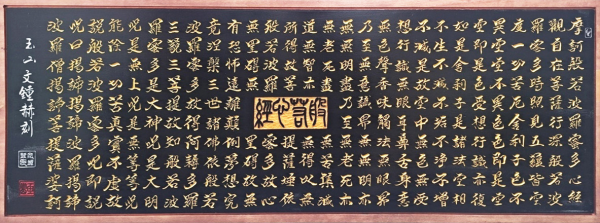 摩訶般若波羅蜜多心經
觀自在菩薩行深般若波
羅蜜多時照見五蘊皆空
度一切苦厄舍利子色不
異空空不異色色即是空
空即是色受想行識亦復
如是舍利子是諸法空相
不生不滅不垢不淨不增
不減是故空中無色無受
想行識無眼耳鼻舌身意
無色聲香味觸法無眼界
乃至無意識界無無明亦
無無明盡乃至無老死亦
無老死盡無苦集滅
道無智亦無得以無
所得故菩提薩埵依
般若波羅蜜多故心
無罣礙無罣礙故無
有恐怖遠離顛倒夢想究
竟涅槃三世諸佛依般若
波羅蜜多故得阿耨多羅
三藐三菩提故知般若波
羅蜜多是大神咒是大明
咒是無上咒是無等等咒
能除一切苦真實不虛故
說般若波羅蜜多咒即說
咒曰揭諦揭諦波羅揭諦
波羅僧揭諦菩提薩婆訶
玉山文鐘赫刻
般若心經